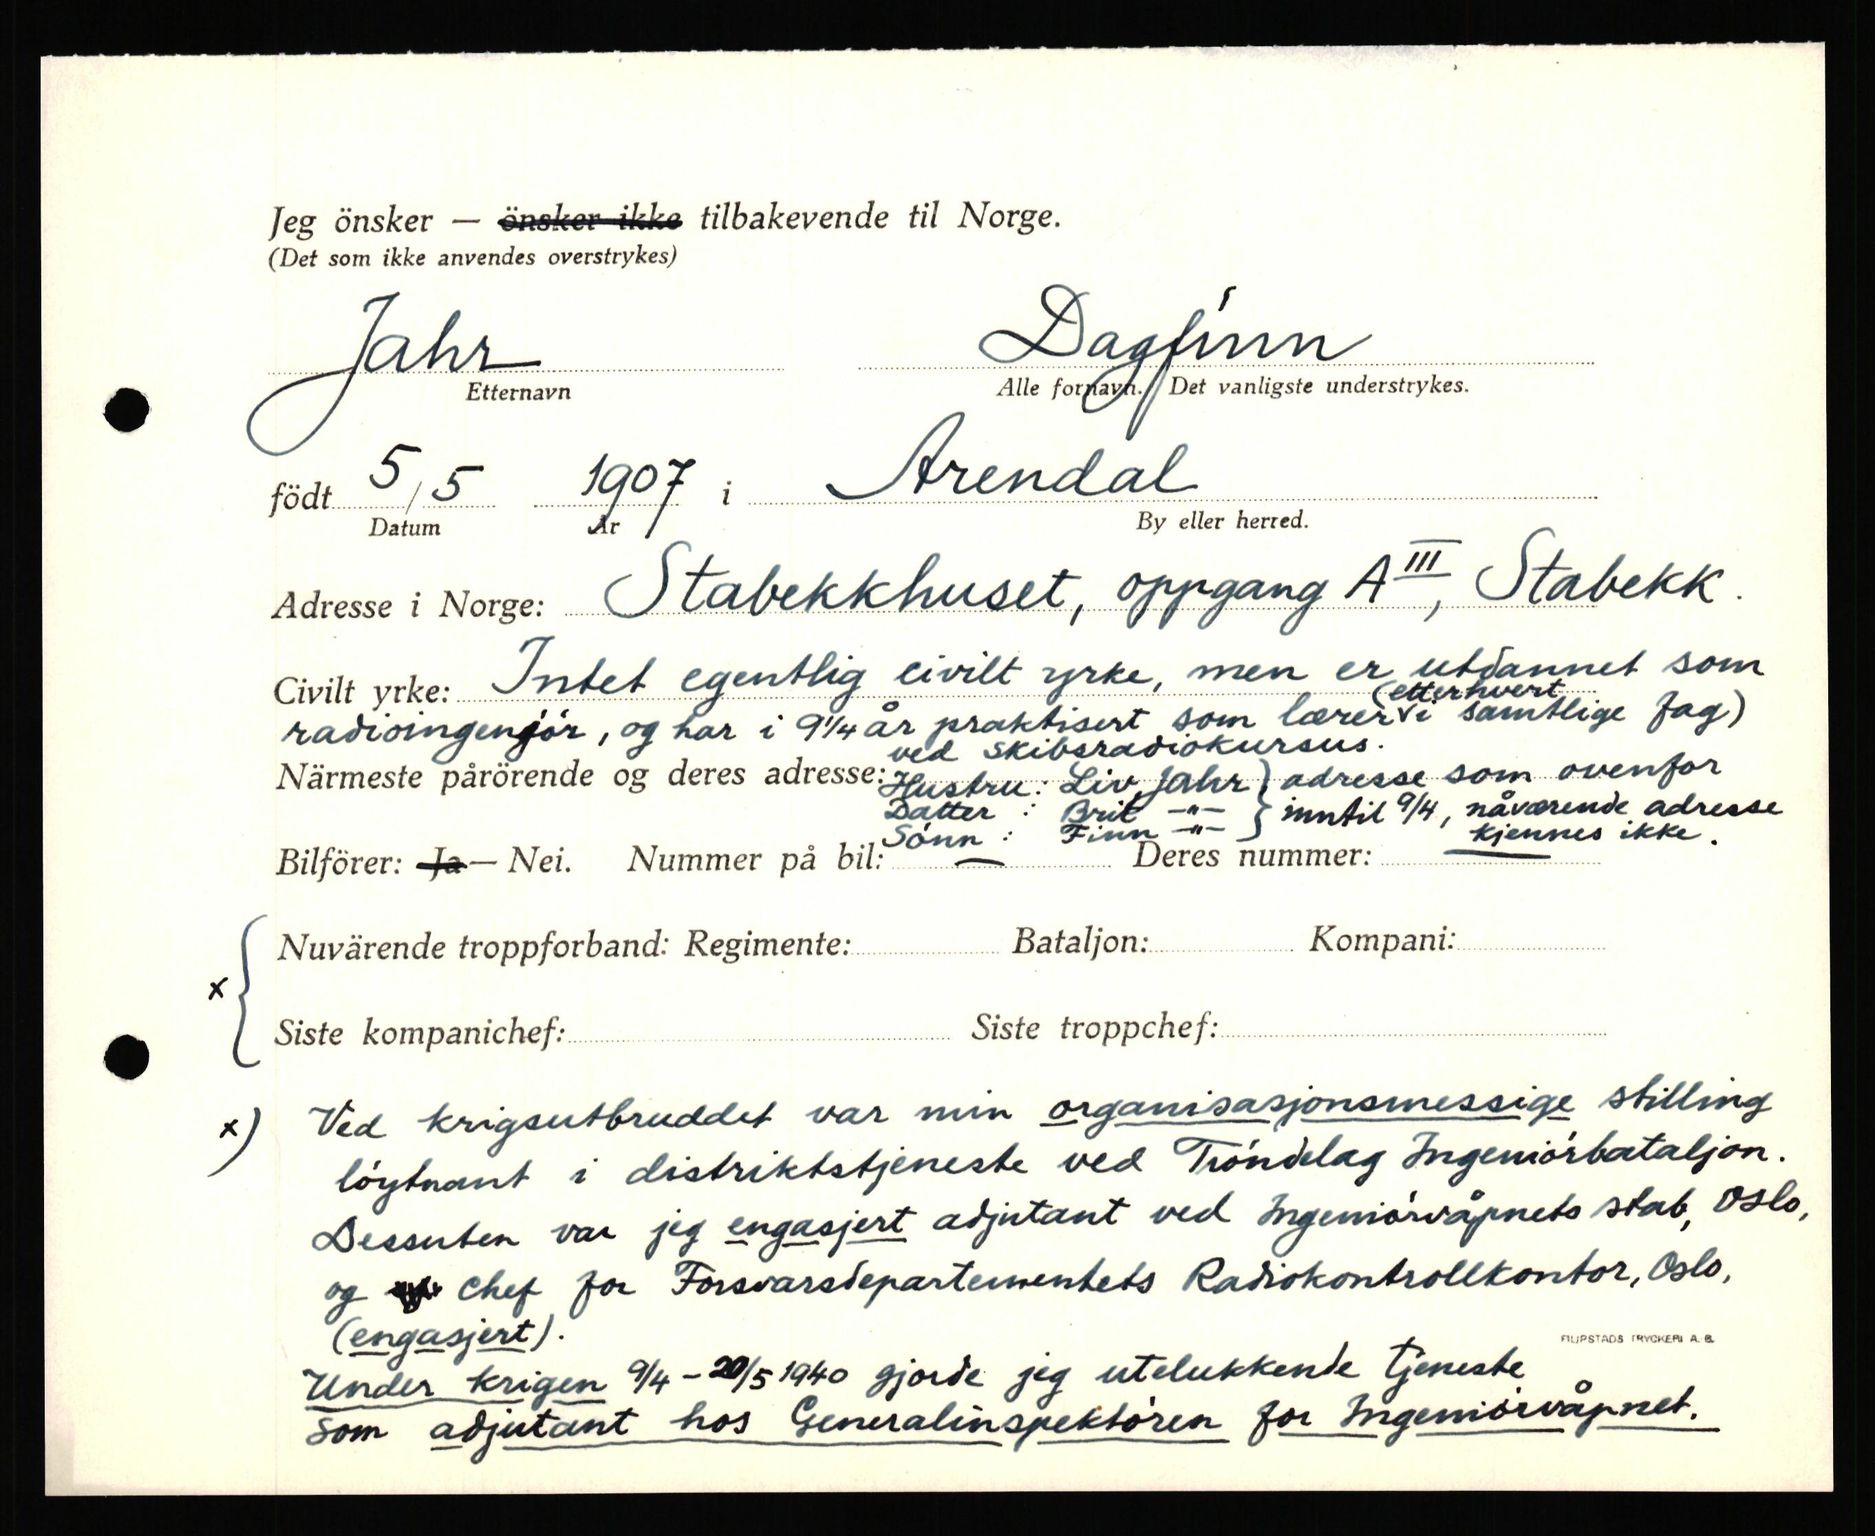 Jeg önsker — önsker ikke tilbakevende til Norge.
(Det som ikke anvendes overstrykes)
Jahr Dagfinn
Etternavn Alle fornavn. Det vanligste understrykes.
födt 5/5 1907 i Arendal
Datum År By eller herred.
Adresse i Norge: Stabekkhuset, oppgang A III, Stabekk.
Civilt yrke: Intet egentlig civilt yrke, men er utdannet som
radioingenjör, og har i 9¼ år praktisert som lærer (etterhvert i samtlige fag)
ved skibsradiokursus.
Närmeste pårörende og deres adresse: Hustru: Liv Jahr } adresse som ovenfor
Datter : Brit —"— } inntil 9/4, nåværende adresse
Sönn : Finn —"— } kjennes ikke.
Bilförer: Ja — Nei. Nummer på bil: — Deres nummer: —
Nuvärende troppforband: Regimente: Bataljon: Kompani:
x {
Siste kompanichef: Siste troppchef:
x) Ved krigsutbruddet var min organisasjonsmessige stilling
löytnant i distriktstjeneste ved Tröndelag Ingeniörbataljon.
Dessuten var jeg engasjert adjutant ved Ingeniörvåpnets stab, Oslo,
og chef for Forsvarsdepartementets Radiokontrollkontor, Oslo,
(engasjert).
FILIPSTADS TRYCKERI A. B.
Under krigen 9/4 – 20/5 1940 gjorde jeg utelukkende tjeneste
som adjutant hos Generalinspektören for Ingeniörvåpnet.